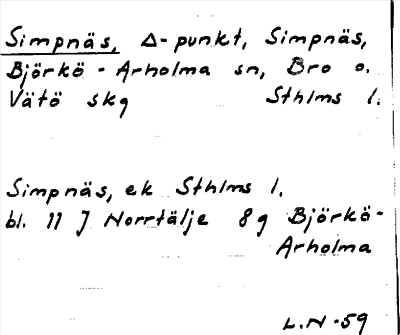 Simpnäs, Δ-punkt, Simpnäs,
Björkö-Arholma sn, Bro o.
Vätö skg Sthlms l.
Simpnäs, ek Sthlms l.
bl. 11 J Norrtälje 8g Björkö-
Arholma
L.N-59